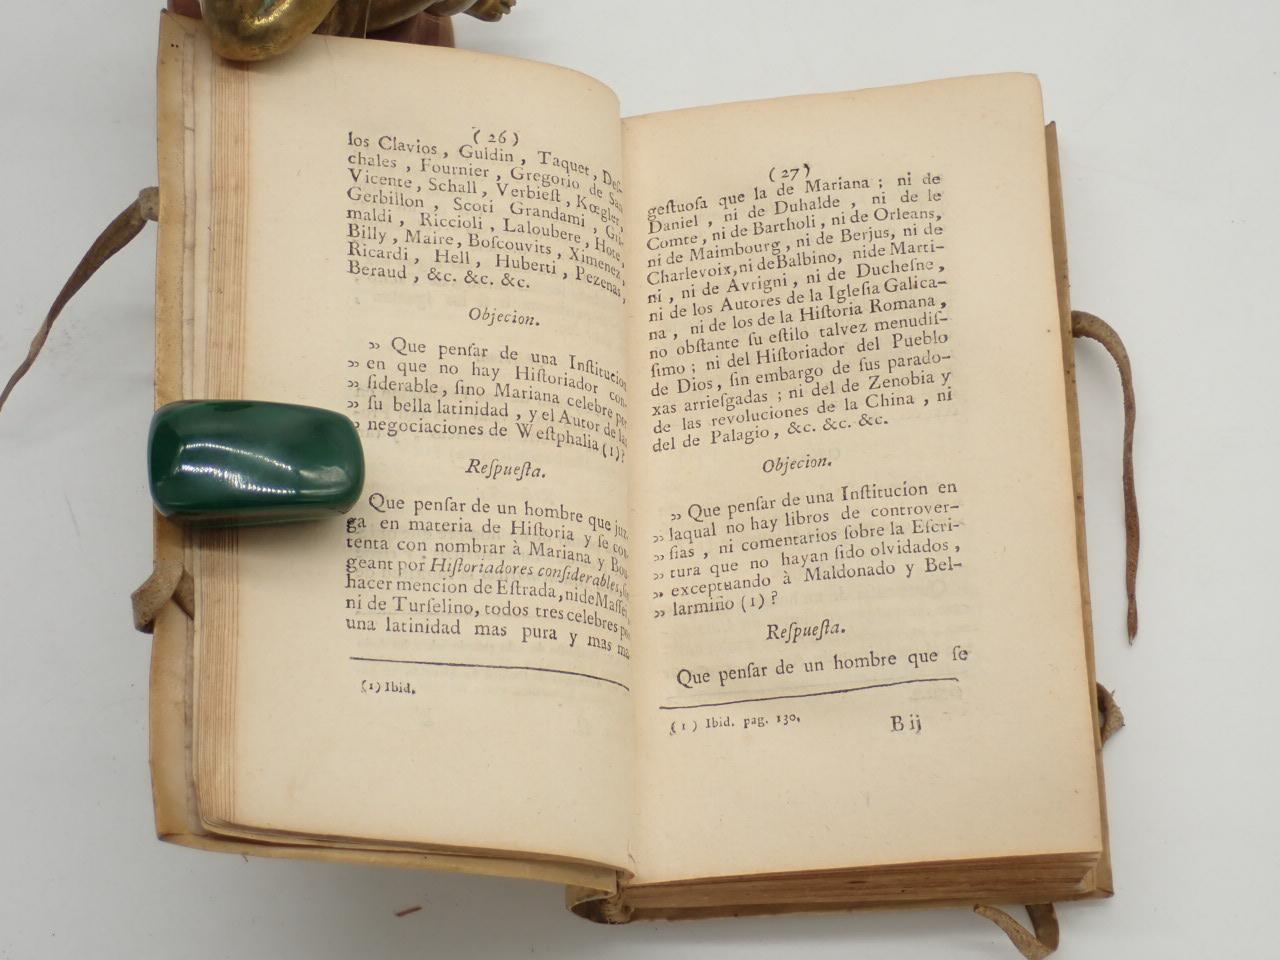 ( 26 )
los Clavios , Guldin , Taquet , Deſ-
chales , Fournier , Gregorio de San
Vicente , Schall , Verbieſt , Kœgler,
Gerbillon , Scoti Grandami , Gri-
maldi , Riccioli , Laloubere , Hoste,
Billy , Maire , Boſcouvits , Ximenez,
Ricardi , Hell , Huberti , Pezenas,
Beraud , &c. &c. &c.
Objecion.
„ Que penſar de una Inſtitucion
„ en que no hay Hiſtoriador con-
„ ſiderable, ſino Mariana celebre por
„ ſu bella latinidad , y el Autor de las
„ negociaciones de Weſtphalia (1)?
Reſpueſta.
Que penſar de un hombre que juz-
ga en materia de Hiſtoria y ſe con-
tenta con nombrar à Mariana y Bou-
geant por Hiſtoriadores conſiderables, ſin
hacer mencion de Eſtrada, ni de Maffei,
ni de Turſelino, todos tres celebres por
una latinidad mas pura y mas ma-
(1) Ibid.
( 27 )
geſtuoſa que la de Mariana ; ni de
Daniel , ni de Duhalde , ni de le
Comte , ni de Bartholi , ni de Orleans,
ni de Maimbourg , ni de Berjus, ni de
Charlevoix, ni de Balbino, nide Marti-
ni , ni de Avrigni , ni de Ducheſne ,
ni de los Autores de la Igleſia Galica-
na , ni de los de la Hiſtoria Romana,
no obſtante ſu eſtilo talvez menudiſ-
ſimo ; ni del Hiſtoriador del Pueblo
de Dios, ſin embargo de ſus parado-
xas arrieſgadas ; ni del de Zenobia y
de las revoluciones de la China , ni
del de Palagio, &c. &c. &c.
Objecion.
„ Que penſar de una Inſtitucion en
„ laqual no hay libros de controver-
„ ſias , ni comentarios ſobre la Eſcri-
„ tura que no hayan ſido olvidados ,
„ exceptuando à Maldonado y Bel-
„ larmino (1) ?
Reſpueſta.
Que penſar de un hombre que ſe
(1) Ibid. pag. 130.
B ij